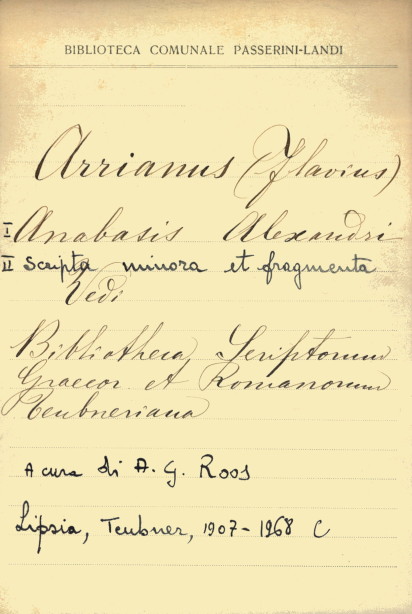 BIBLIOTECA COMUNALE PASSERINI-LANDI
Arrianus (Flavius)
I Anabasis Alexandri
II Scripta minora et fragmenta
Vedi
Bibliotheca Scriptorum
Graecor. et Romanorum
Teubneriana
A cura di A. G. Roos
Lipsia, Teubner, 1907-1968 C